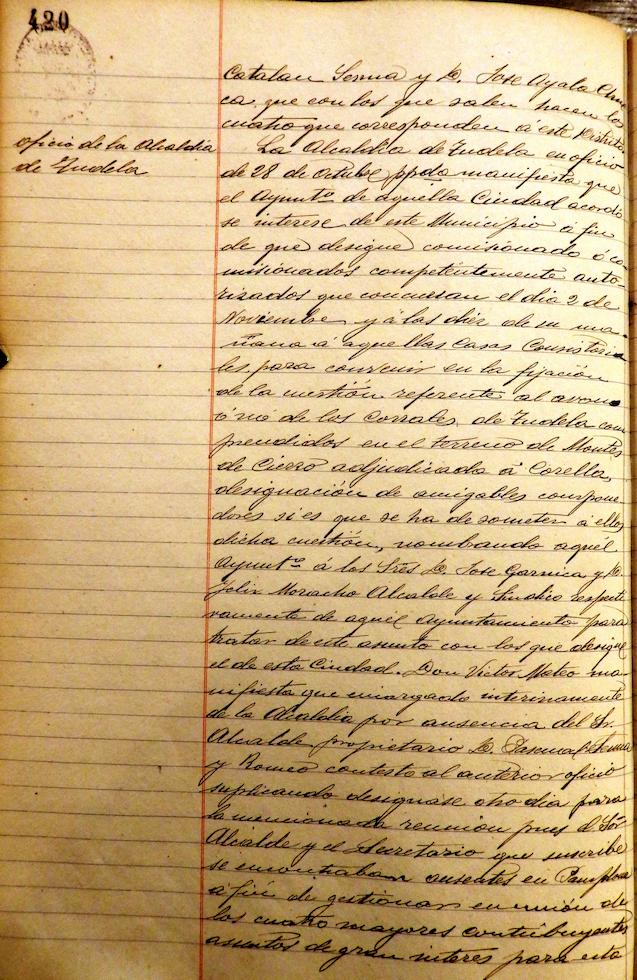 420
Catalan Senna y D. Jose Ayala
ca, que con los que salen hacen los
cuatro que corresponden á este Distrito
oficio de la Alcaldia
de Tudela
La Alcaldia de Tudela en oficio
de 28 de Octubre ppdo manifiesta que
el Ayuntº de aquella Ciudad acordó
se interese de este Municipio a fin
de que designe comisionado ó co-
misionados competentemente auto-
rizados que concurran el dia 2 de
Noviembre y á las diez de su ma-
ñana á aquellas Casas Consistoria
les, para convenir en la fijación
de la cuestión referente al avono
ó nó de los Corrales de Tudela com
prendidos en el terreno de Montes
de Cierzo adjudicado á Corella,
designación de amigables compone
dores si es que se ha de someter á ellos
dicha cuestión, nombando aquél
Ayuntº á los Srés D. Jose Garnica y D.
Felix Moracho Alcalde y Sindico respecti
vamente de aquel Ayuntamiento para
tratar de este asunto con los que designe
el de esta Ciudad. Don Victor Mateo ma-
nifiesta que encargado interinamente
de la Alcaldia por ausencia del Sr.
Alcalde propietario D. Pascual Senna
y Romeo contestó al anterior oficio
suplicando designase otro dia para
la mencionada reunión pues el Sór
Alcalde y el Secretario que suscribe
se encontraban ausentes en Pamplona
a fin de gestionar en unión de
los cuatro mayores contribuyentes
asuntos de gran interes para esta